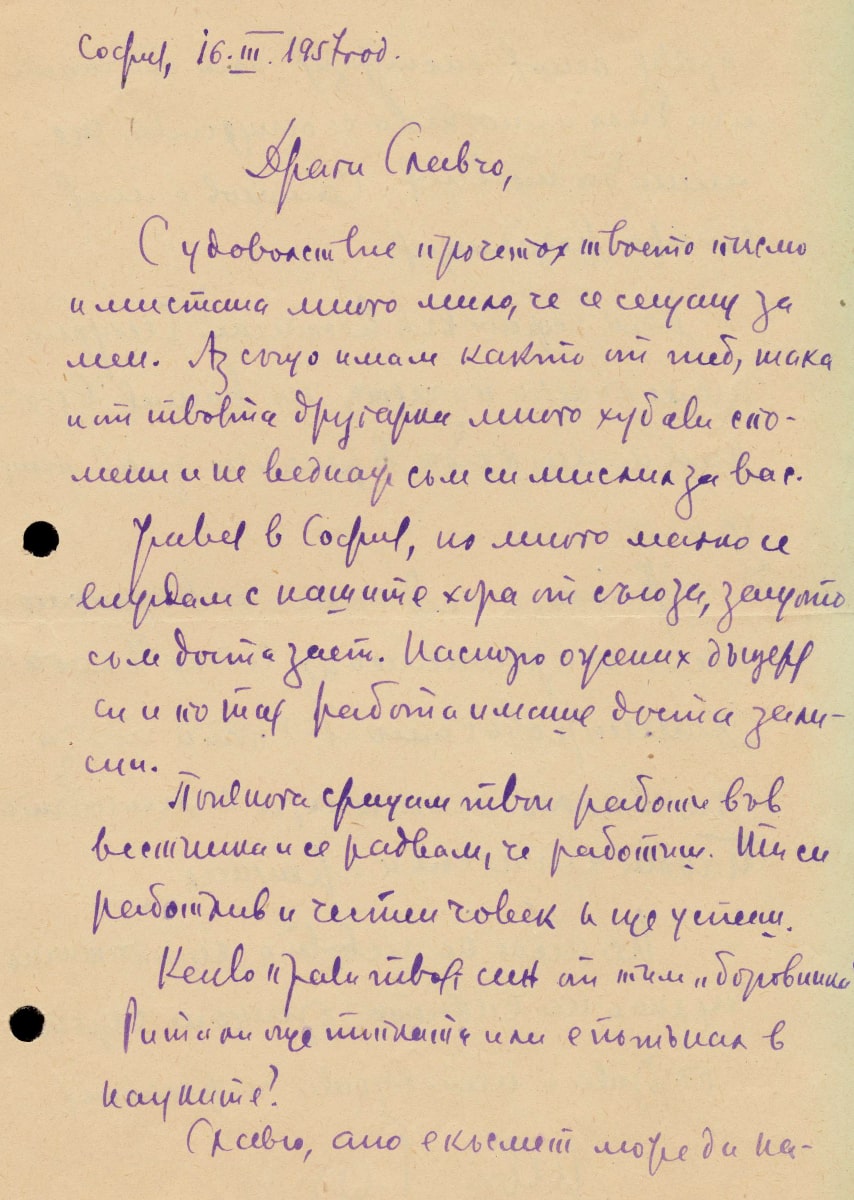 София, 16.III.1957год.
Драги Славчо,
С удоволствие прочетох твоето писмо
и ми стана много мило, че се сещаш за
мен. Аз също имам както от теб, така
и от твоята другарка много хубави спо-
мени и не веднаж съм си мислил за вас.
Живея в София, но много малко се
виждам с нашите хора от съюза, защото
съм доста зает. Наскоро ожених дъщеря
си и по тая работа имаше доста зали-
сии.
Понякога срещам твои работи във
вестника и се радвам, че работиш. Ти си
работлив и честен човек и ще успееш.
Какво прави твоя син от тим „боровинка"
Рита ли още топката или е потънал в
науките?
Славчо, ако е късмет може да на-